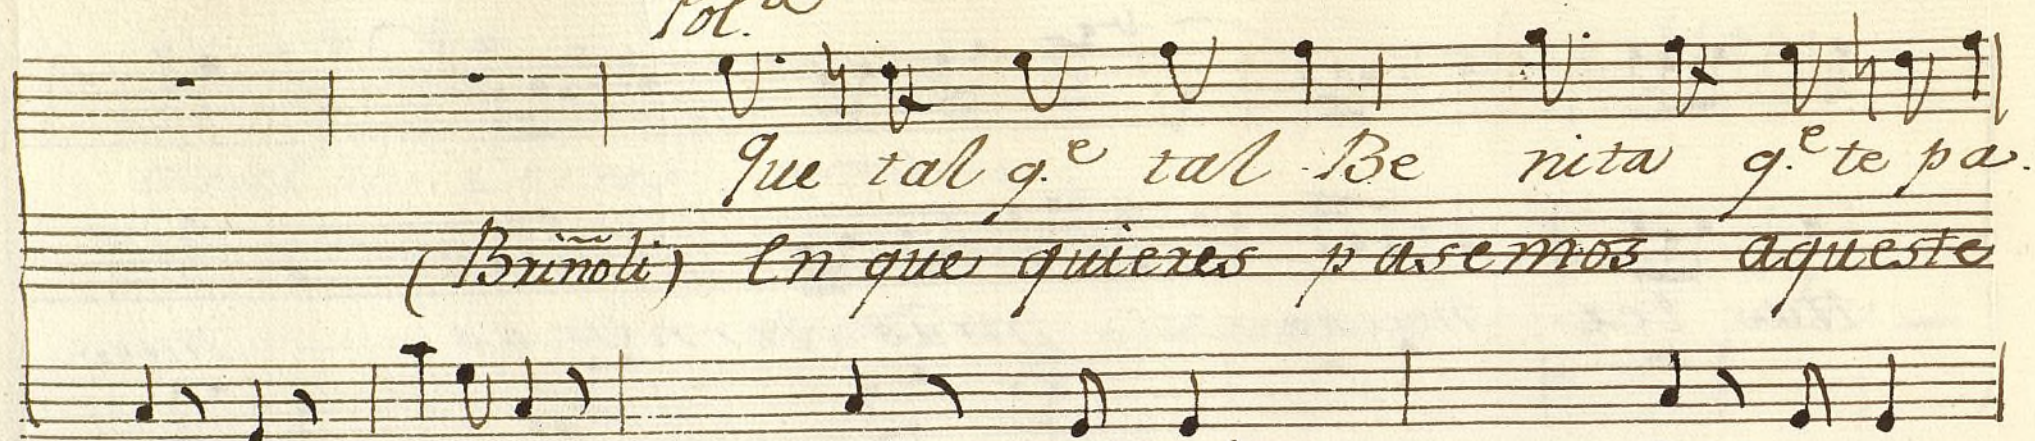 Pol.a
Que tal q.e tal Be nita q.e te pa.
(Briñoli) En que quieres pasemos aqueste